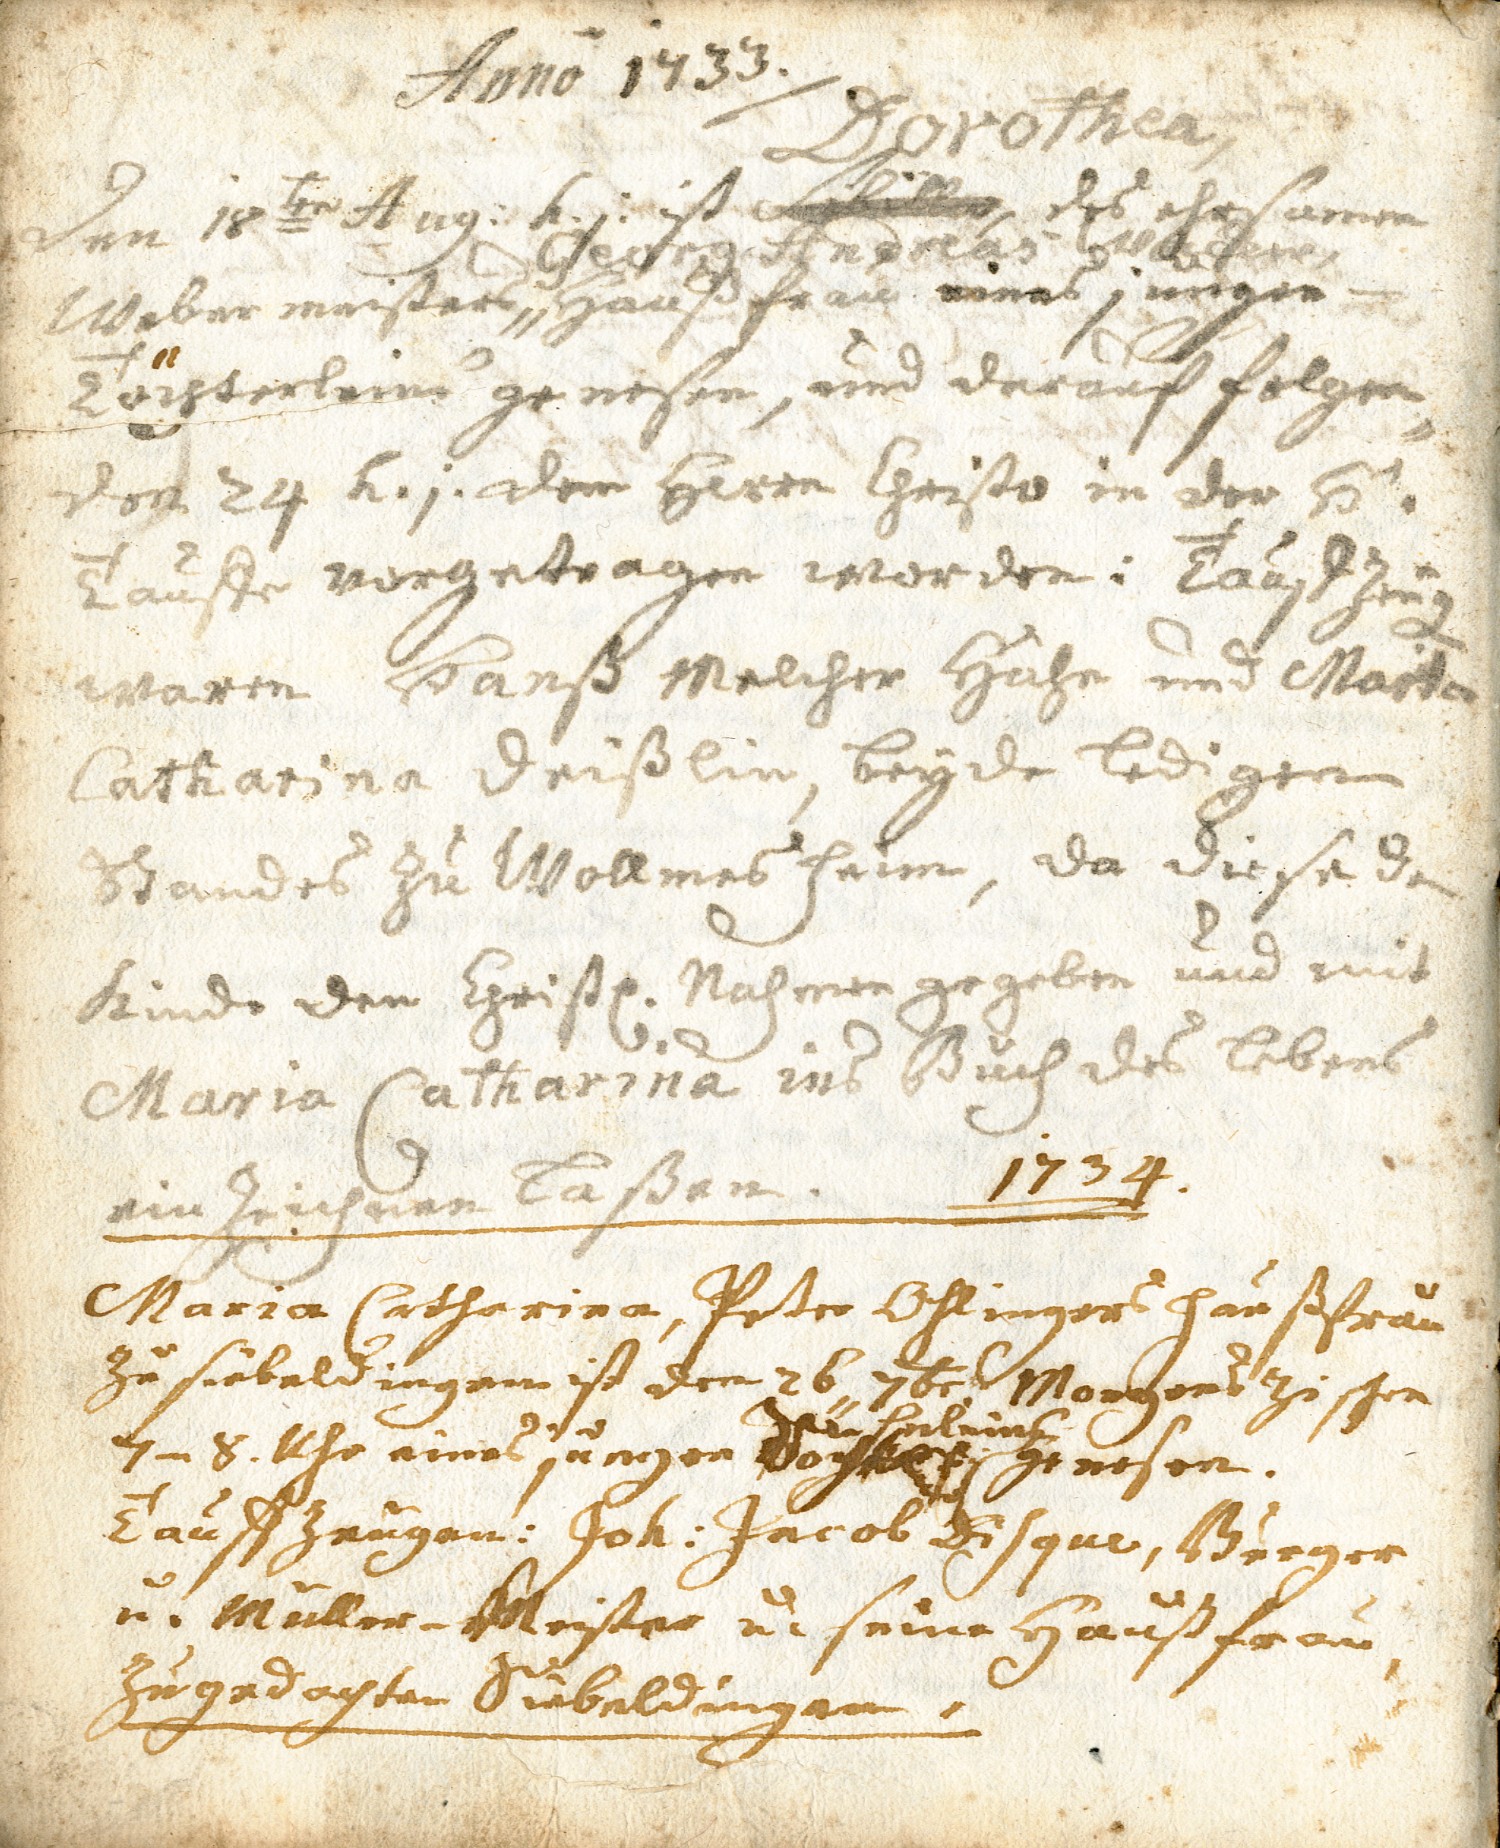 Anno 1733.
Dorothea,
Den 18ten Aug: h. j. ist des ehrsamen
Georg Andreas
Webermeisters, Haußfrau eines jungen
Töchterleins genesen, und darauf folgen,,
den 24 h. j. dem Herrn Christo in der H.
Tauffe vorgetragen worden: Tauffzeug
waren Hanß Melcher Hahn und Maria
Catharina Deißlin, beyde ledigen
Standes zu Wollmesheim, da diese dem
Kinde den Christl. Nahmen gegeben und mit
Maria Catharina ins Buch des Lebens
einzeichnen laßen. 1734.
Maria Catharina, Peter Ohlingers Haußfrau
zu Siebeldingen ist den 26,, 7br. Morgens zischen
7 - 8. Uhr eines jungen Söhnleins genesen.
Tauffzeugen: Joh: Jacob Disque, Burger
u. Müller-Meister u. seine Haußfrau,
zu gedachten Siebeldingen.